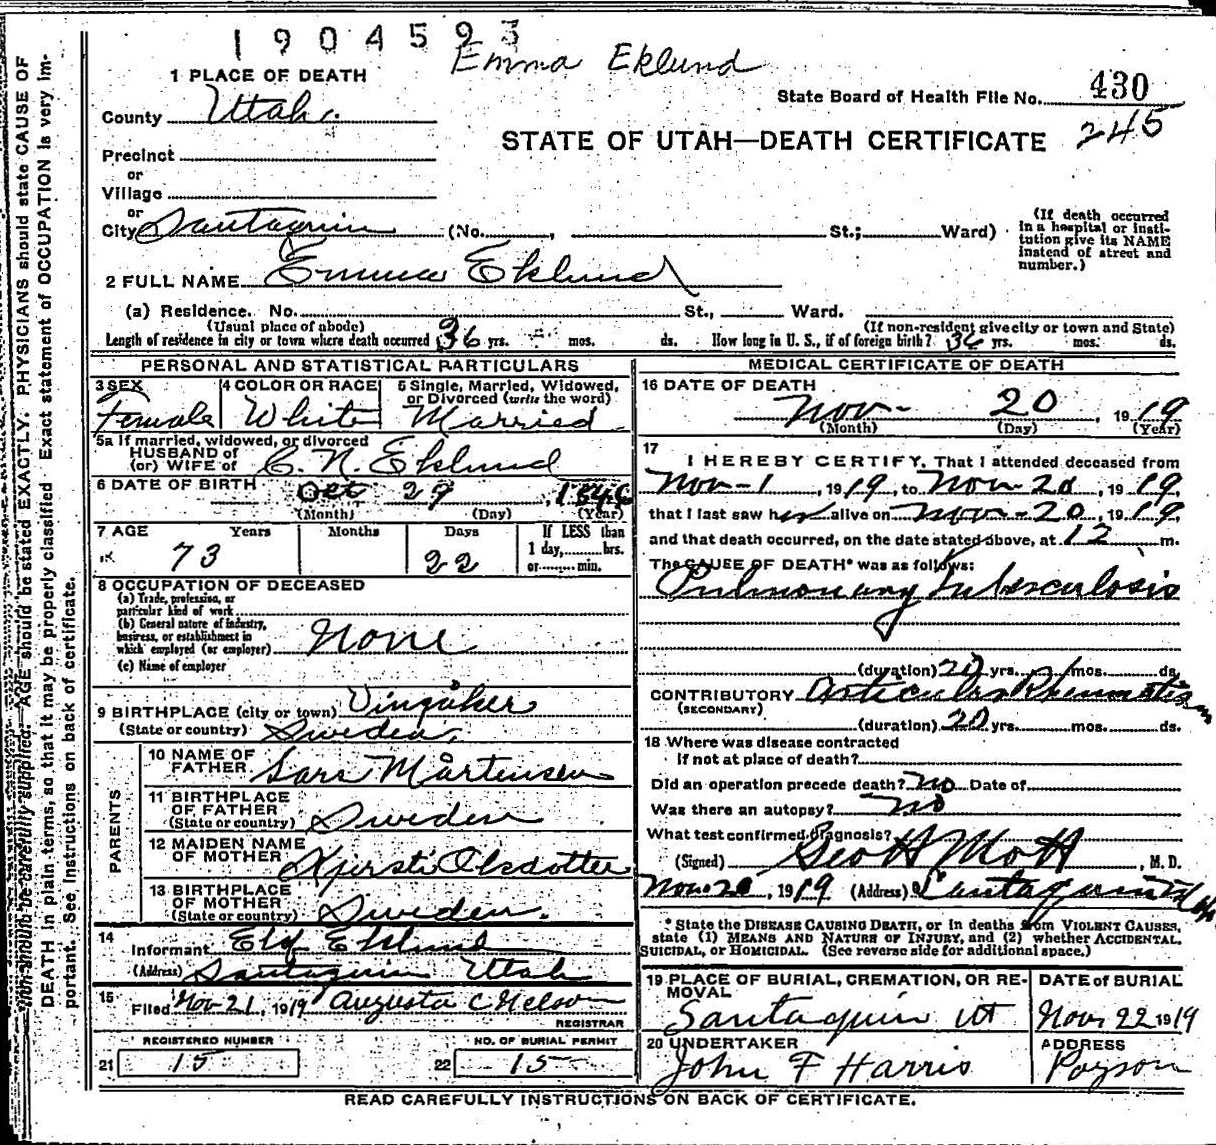 1904593
Emma Eklund
1 PLACE OF DEATH
State Board of Health File No. 430
245
County Utah.
STATE OF UTAH—DEATH CERTIFICATE
Precinct
or
Village
or
City Santaquin (No. , St.; Ward)
(If death occurred in a hospital or institution give its NAME instead of street and number.)
2 FULL NAME Emma Eklund
(a) Residence. No. St., Ward.
(Usual place of abode) (If non-resident give city or town and State)
Length of residence in city or town where death occurred 36 yrs. mos. ds. How long in U. S., if of foreign birth? 36 yrs. mos. ds.
PERSONAL AND STATISTICAL PARTICULARS
3 SEX Female
4 COLOR OR RACE White
5 Single, Married, Widowed, or Divorced (write the word) Married
5a If married, widowed, or divorced
HUSBAND of
(or) WIFE of C. N. Eklund
6 DATE OF BIRTH Oct 29, 1846
(Month) (Day) (Year)
7 AGE Years Months Days If LESS than
73 22 1 day, hrs.
or min.
8 OCCUPATION OF DECEASED
(a) Trade, profession, or
particular kind of work
(b) General nature of industry,
business, or establishment in
which employed (or employer) None
(c) Name of employer
9 BIRTHPLACE (city or town) Vingåker
(State or country) Sweden.
PARENTS
10 NAME OF
FATHER Lars Mårtensen
11 BIRTHPLACE
OF FATHER
(State or country) Sweden
12 MAIDEN NAME
OF MOTHER Kjersti Olsdotter
13 BIRTHPLACE
OF MOTHER
(State or country) Sweden.
14
Informant Elof Eklund
(Address) Santaquin Utah
15
Filed Nov-21, 1919 Augusta C Nelson
REGISTRAR
REGISTERED NUMBER NO. OF BURIAL PERMIT
21 15 22 15
MEDICAL CERTIFICATE OF DEATH
16 DATE OF DEATH
Nov- 20, 1919
(Month) (Day) (Year)
17
I HEREBY CERTIFY, That I attended deceased from
Nov-1, 1919, to Nov-20, 1919,
that I last saw her alive on Nov-20, 1919
and that death occurred, on the date stated above, at 12 m.
The CAUSE OF DEATH* was as follows:
Pulmonary Tuberculosis
(duration) 20 yrs. mos. ds.
CONTRIBUTORY Articular Rheumatism
(SECONDARY)
(duration) 20 yrs. mos. ds.
18 Where was disease contracted
if not at place of death?
Did an operation precede death? No Date of
Was there an autopsy? No
What test confirmed diagnosis?
(Signed) Scott Mott, M. D.
Nov-20, 1919 (Address) Santaquin
* State the DISEASE CAUSING DEATH, or in deaths from VIOLENT CAUSES,
state (1) MEANS AND NATURE OF INJURY, and (2) whether ACCIDENTAL,
SUICIDAL, or HOMICIDAL. (See reverse side for additional space.)
19 PLACE OF BURIAL, CREMATION, OR REMOVAL
Santaquin Ut
DATE of BURIAL
Nov 22 1919
20 UNDERTAKER
John F Harris
ADDRESS
Payson
READ CAREFULLY INSTRUCTIONS ON BACK OF CERTIFICATE.
should be carefully supplied. AGE should be stated EXACTLY. PHYSICIANS should state CAUSE OF
DEATH in plain terms, so that it may be properly classified. Exact statement of OCCUPATION is very im-
portant. See Instructions on back of certificate.